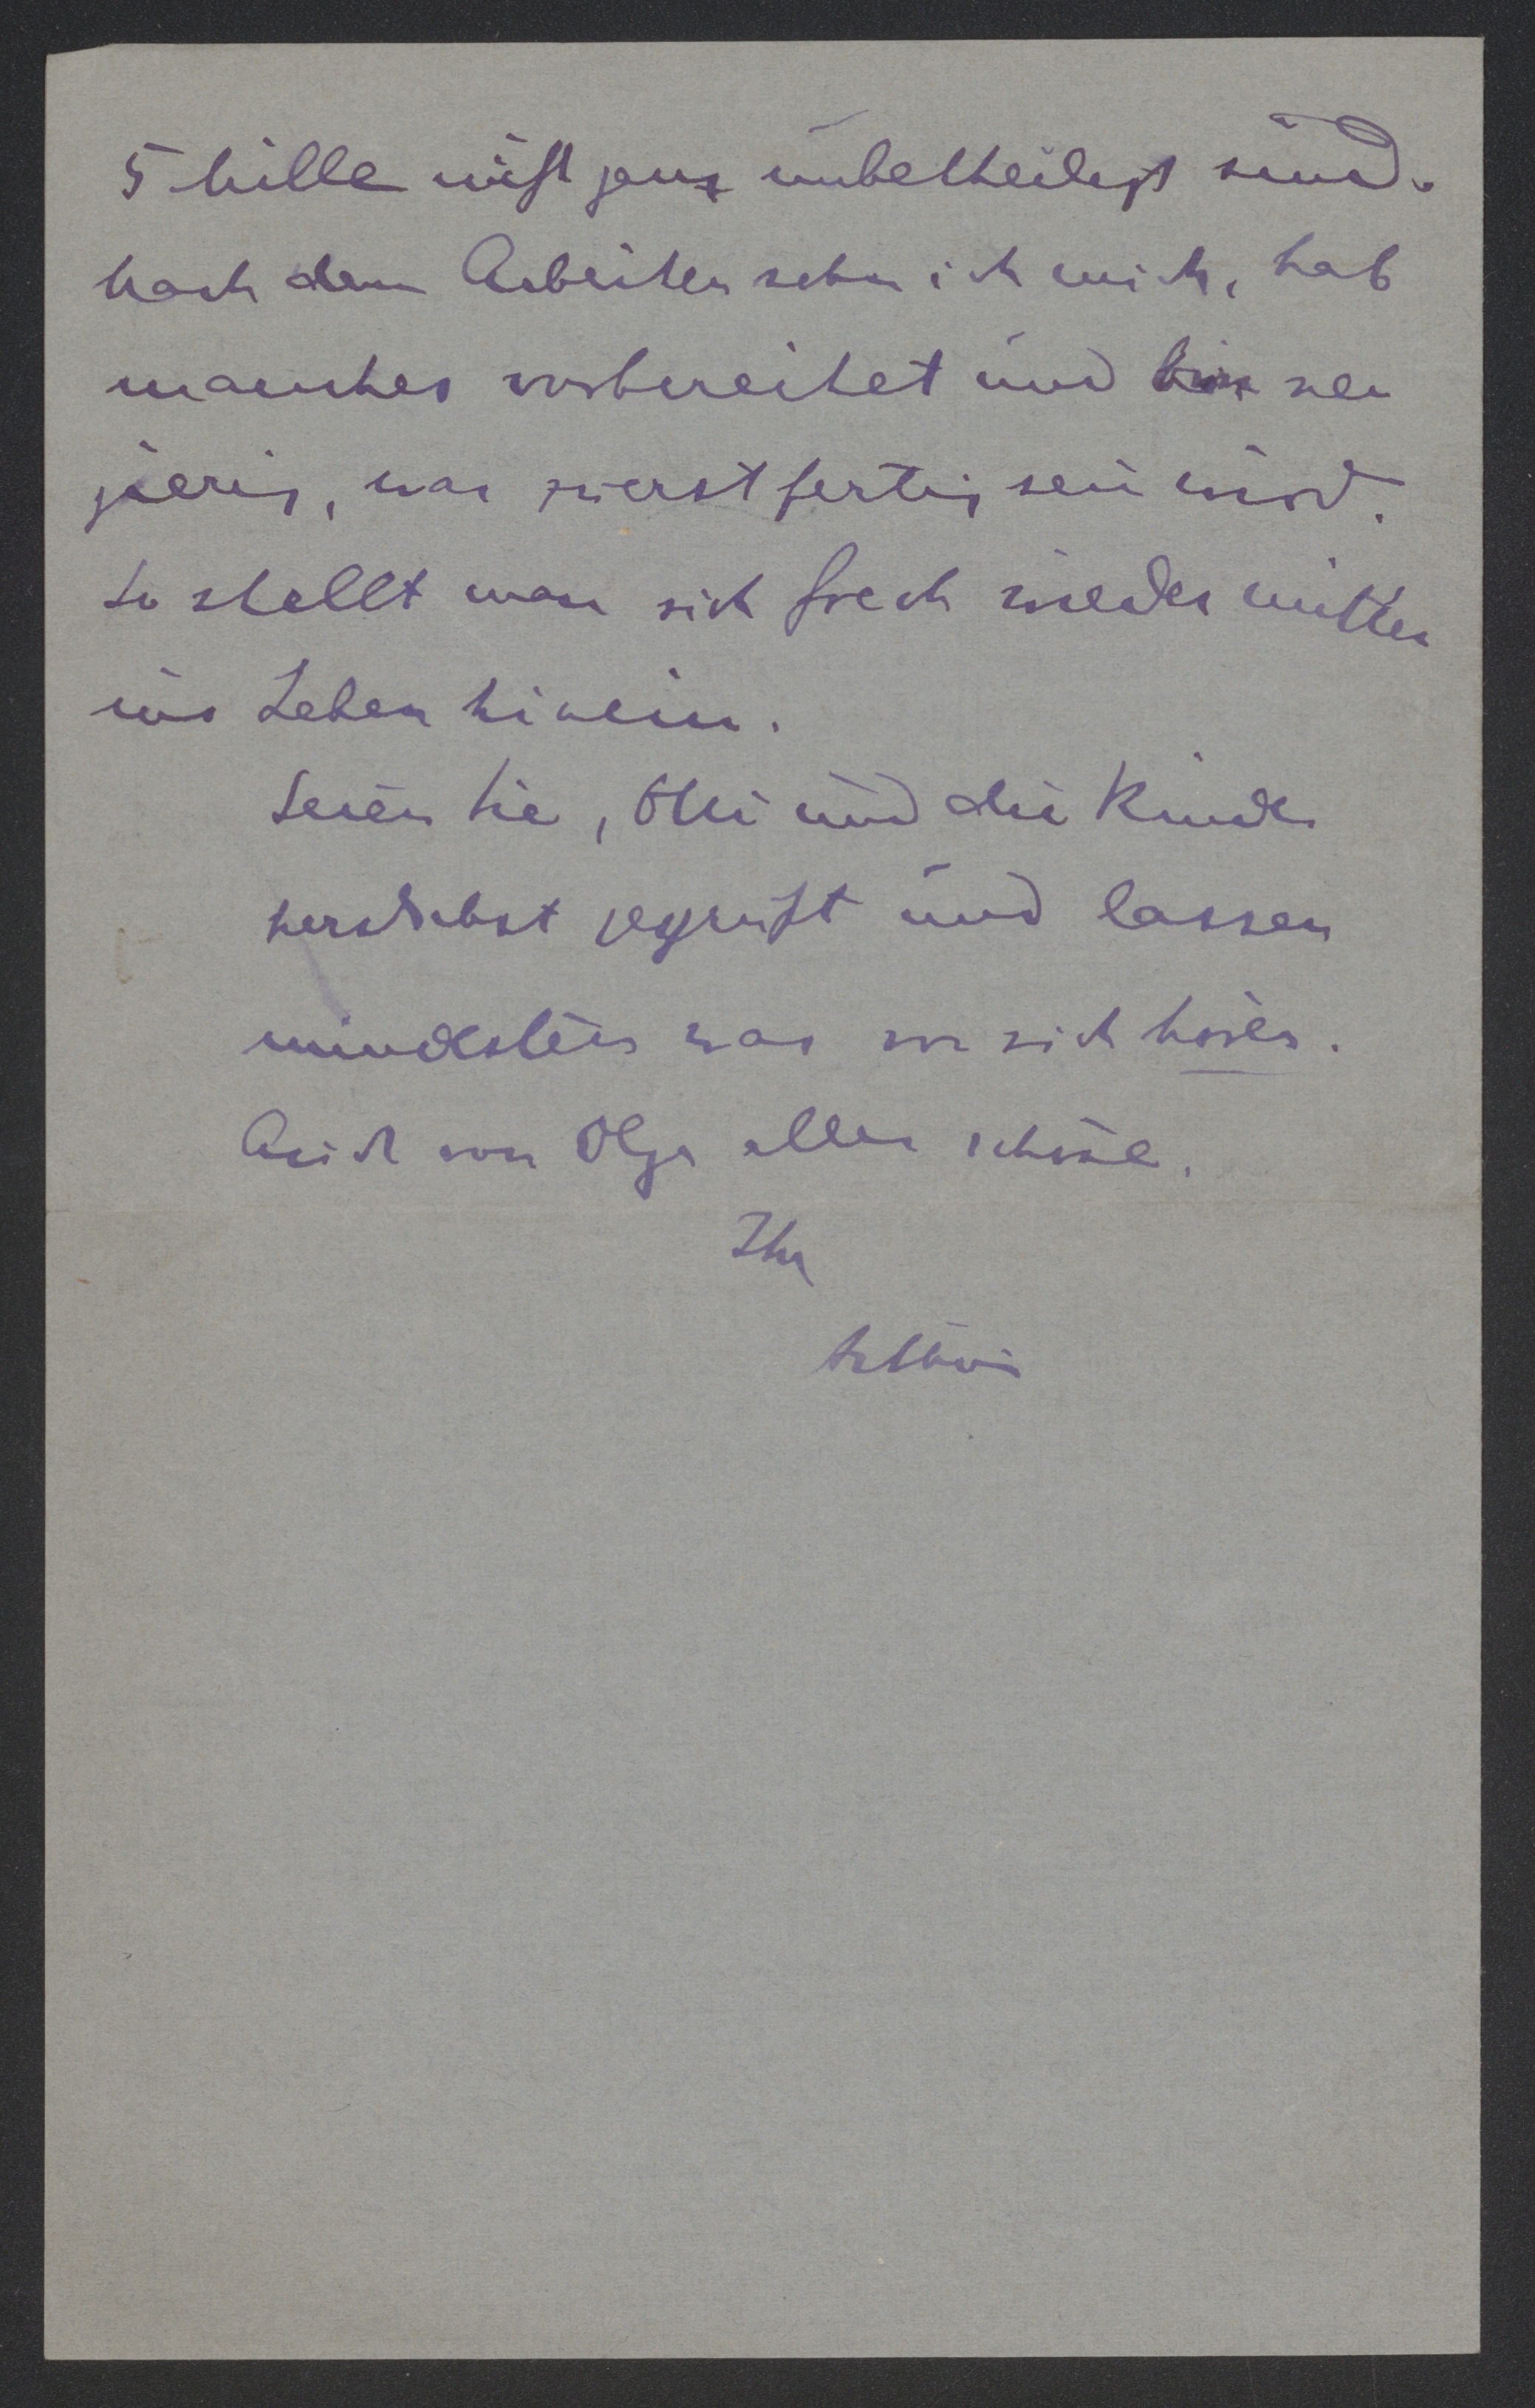 5 Mille nicht ganz unbetheiligt sind.
Nach dem Arbeiten sehn ich mich, hab
manches vorbereitet und bin neu
gierig, was zuerst fertig sein wird.
So stellt man sich frech wieder mitten
ins Leben hinein.
Seien Sie, Olli und die Kinder
herzlichst gegrüßt und lassen
mindestens was von sich hören.
Auch von Olga alles schöne.
Ihr
Arthur